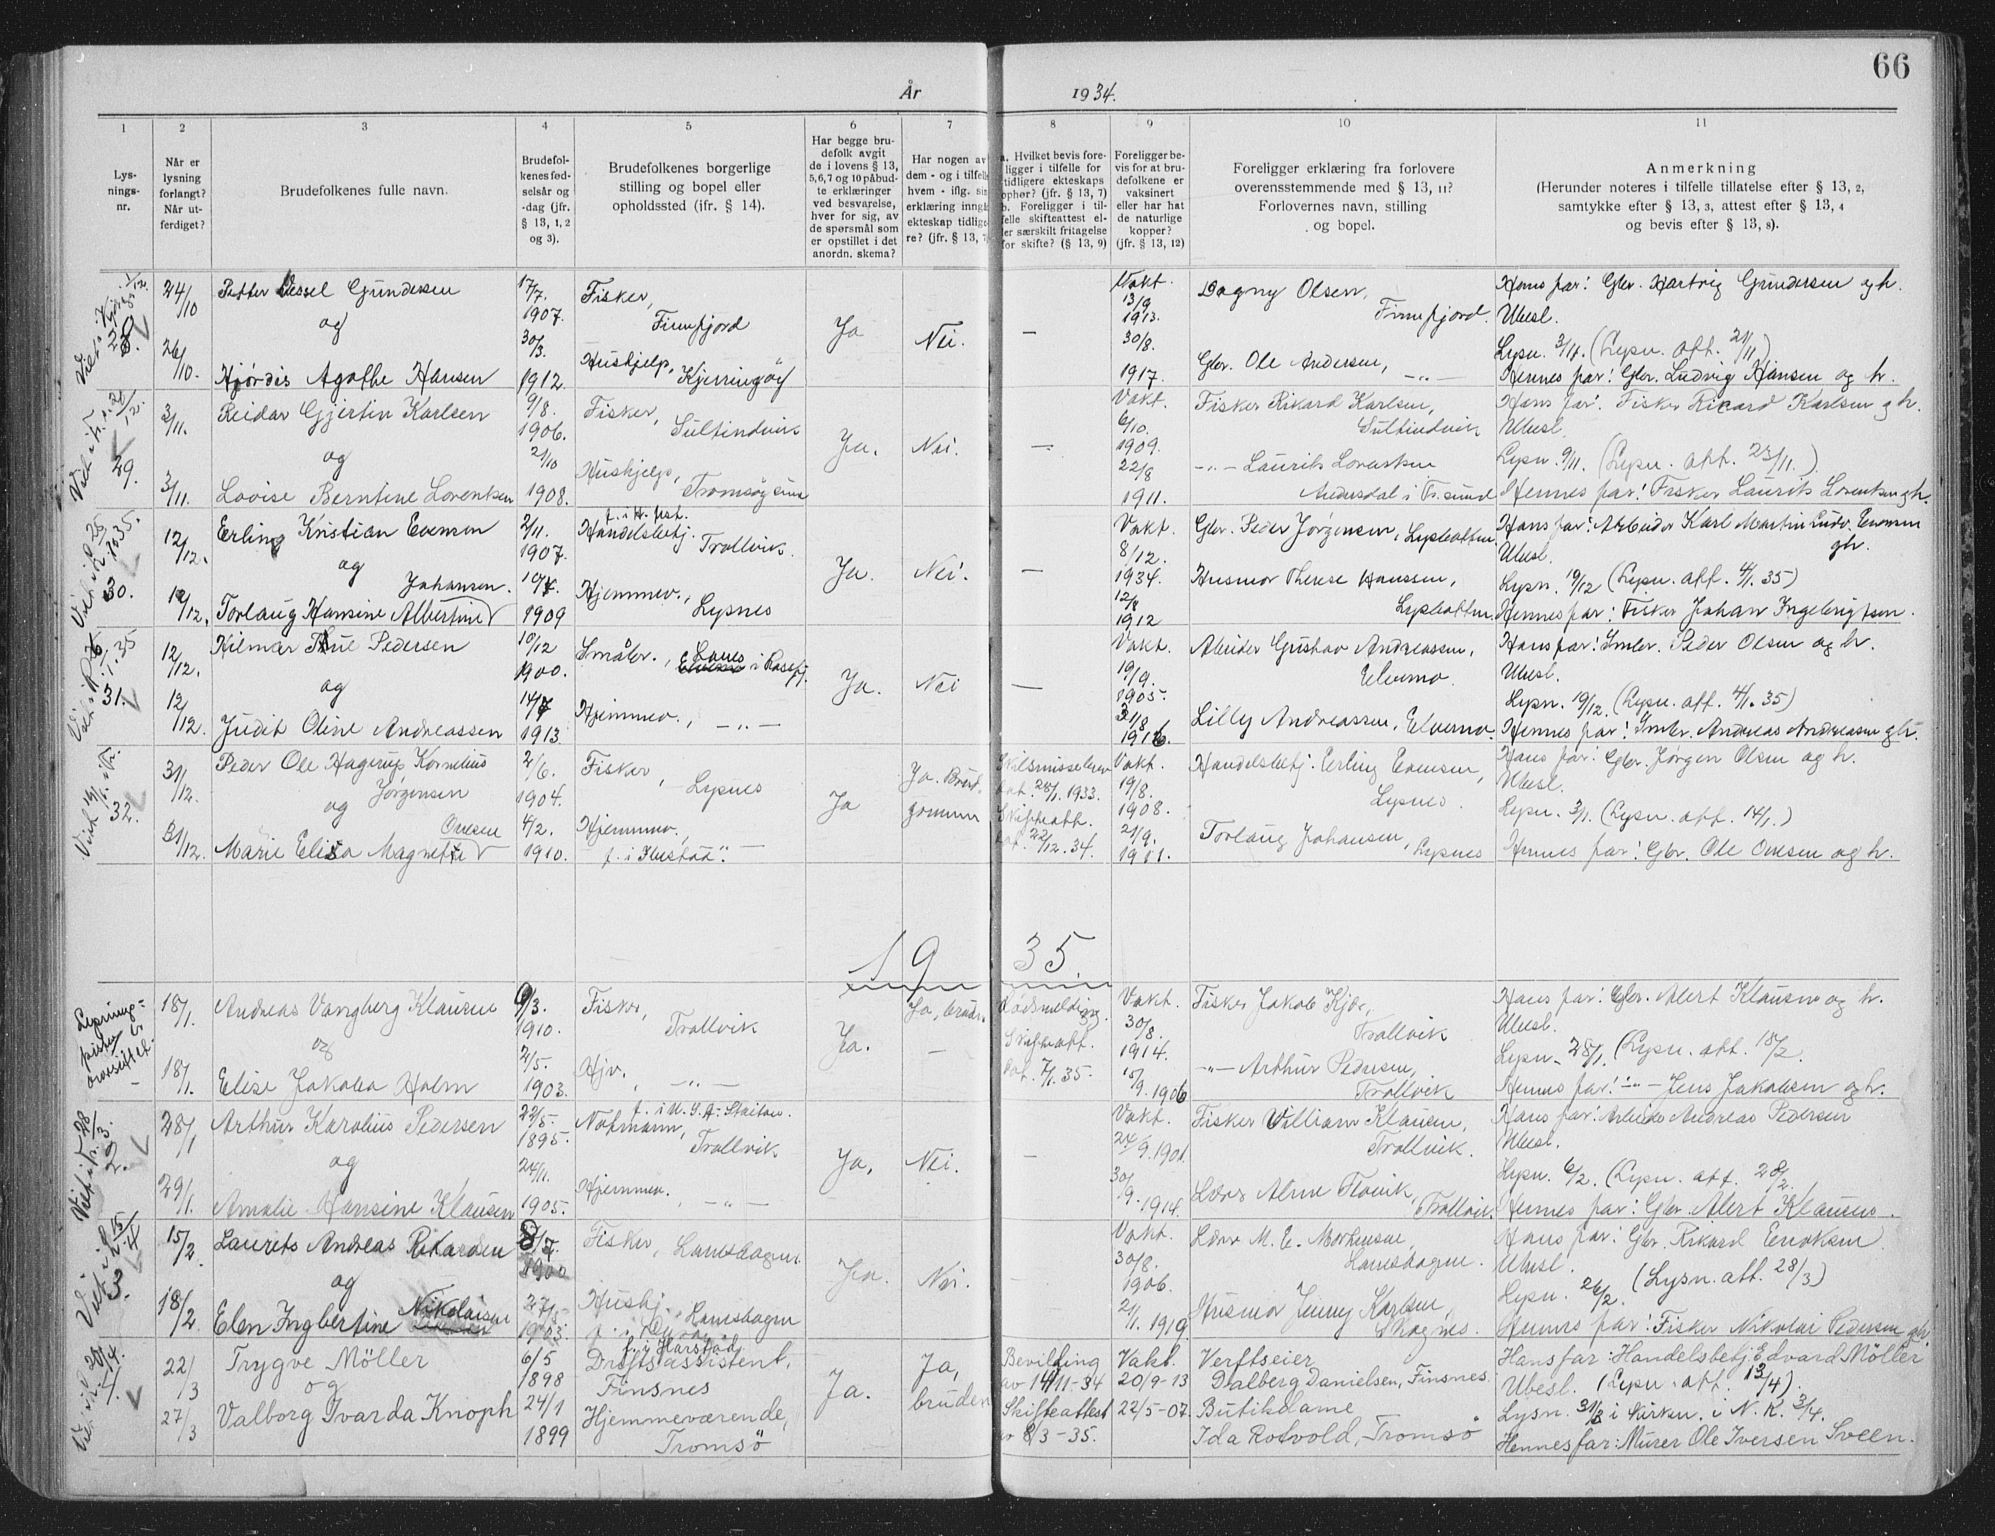 66
År 1934.
1 2 3 4 5 6 7 8 9 10 11
Lys-
nings-
nr.
Når er
lysning
forlangt?
Når ut-
ferdiget?
Brudefolkenes fulle navn.
Brudefol-
kenes fød-
selsår og
-dag (jfr.
§ 13, 1, 2
og 3).
Brudefolkenes borgerlige
stilling og bopel eller
opholdssted (jfr. § 14).
Har begge bru-
defolk avgit
de i lovens § 13,
5,6,7 og 10 påbud-
te erklæringer
ved besvarelse,
hver for sig, av
de spørsmål som
er opstillet i det
anordn. skema?
Har nogen av
dem - og i tilfelle
hvem - iflg. sin
erklæring inngå
ekteskap tidlige
re? (jfr. § 13, 7)
a. Hvilket bevis fore-
ligger i tilfelle for
tidligere ekteskaps
ophør? (jfr. § 13, 7)
b. Foreligger i til-
felle skifteattest el-
ler særskilt fritagelse
for skifte? (§ 13, 9)
Foreligger be-
vis for at bru-
defolkene er
vaksinert
eller har hat
de naturlige
kopper?
(jfr. § 13, 12)
Foreligger erklæring fra forlovere
overensstemmende med § 13, 11?
Forlovernes navn, stilling
og bopel.
Anmerkning
(Herunder noteres i tilfelle tillatelse efter § 13, 2,
samtykke efter § 13, 3, attest efter § 13, 4
og bevis efter § 13, 8).
28.
24/10
26/10.
Petter Wessel Gundersen
og
Hjørdis Agathe Hansen
17/7. 1907.
30/3. 1912.
Fisker,
Finnfjord
Hushjelp,
Kjerringøy
Ja
Nei.
—
Vakt.
13/9 1913.
30/8. 1917.
Dagny Olsen,
Finnfjord.
Gbr. Ole Andersen,
— " —
Hans far: Gbr. Hartvig Gundersen gh.
Ubesl.
Lysn. 3/11. (Lysn. att. 21/11)
Hennes far: Gbr. Ludvig Hansen og h.
29.
3/11.
3/11.
Reidar Gjertin Karlsen
og
Lovise Berntine Lorentsen
9/8. 1906.
2/10 1908.
Fisker,
Sultindvik
Hushjelp,
Tromsøysund
Ja.
Nei.
—
Vakt.
6/10. 1909.
22/8 1911.
Fisker Rikard Karlsen,
Sultindvik
— " — Laurits Lorentsen
Andersdal i Tr.sund
Hans far: Fisker Ricard Karlsen gh.
Ubesl.
Lysn. 9/11. (Lysn. att. 23/11.)
Hennes far: Fisker Laurits Lorentsen gh.
30.
12/12.
12/12.
Erling Kristian Evensen
og
Johansen.
Torlaug Hansine Albertine
2/11. 1907.
1909
f. i H.fest.
Handelsbetj.
Trollvik.
Hjemmev.,
Lysnes
Ja.
Nei.
—
Vakt.
8/12. 1934.
12/8 1912
Gbr. Peder Jørgensen, Lysbotten.
Husmor Therese Hanssen,
Lysbotten.
Hans far: Arbeider Karl Martin Ludv. Evensen
gh.
Ubesl.
Lysn. 19/12 (Lysn. att. 4/1. 35)
Hennes far: Fisker Johan Ingebrigtsen.
31.
12/12.
12/12.
Hilmar Thue Pedersen
og
Judit Oline Andreassen
10/12 1900.
14/7 1913.
Småbr., Lanes i Rossfj.
Hjemmev., — " —
Ja.
Nei
—
Vakt.
19/9. 1905.
31/8 1916.
Arbeider Gustav Andreassen,
Elvemo.
Lilly Andreassen, Elvemo.
Hans far: Småbr. Peder Olsen og h.
Ubesl.
Lysn. 19/12. (Lysn. att. 4/1. 35)
Hennes far: Småbr. Andreas Andreassen gh.
32.
31/12.
31/12.
Peder Ole Hagerup Kornelius
Jørgensen
og
Ovesen
Marie Elisa Magnethe
2/6. 1904.
4/2. 1910.
Fisker,
Lysnes
Hjemmev.,
Ja
Ja. Brud-
gommen
Skilsmissebrev
dat. 28/1. 1933.
Skifteatt.
dat. 22/12. 34.
Vakt.
19/8. 1908.
21/9. 1911.
Handelsbetj. Erling Evensen,
Lysnes.
Torlaug Johansen,
Lysnes
Hans far: Gbr. Jørgen Olsen og h.
Ubesl.
Lysn. 3/1. (Lysn. att. 14/1.)
Hennes far: Gbr. Ole Ovesen og h.
1935.
18/1.
18/1.
Andreas Vangberg Klausen
og
Elise Jakoba Holm
9/3. 1910.
2/5. 1903.
Fisker,
Trollvik
Hjv.
— " —
Ja.
Ja, bruden
—
Dødsmelding
Skifteatt.
dat. 7/1. 35.
Vakt.
30/8. 1914.
15/9. 1906
Fisker Jakob Kjær,
Trollvik
— " — Arthur Pedersen,
Trollvik
Hans far: Gbr. Alert Klausen og h.
Ubesl.
Lysn. 28/1. (Lysn. att. 18/2.
Hennes far: — " — Jens Jakobsen og h.
2.
28/1
29/1.
Arthur Karolius Pedersen
og
Amalie Hansine Klausen
22/5. 1895.
24/11. 1905.
f. i U.S.A.
Notmann,
Trollvik
Hjemmev.
— " —
Ja.
Nei.
—
Vakt.
24/9. 1901.
30/9. 1914.
Fisker William Klausen,
Trollvik.
Trollvik.
Hans far: Arbeider Andreas Pedersen
Ubesl.
Lysn. 6/2. (Lysn. att. 28/2.
Hennes far: Gbr. Alert Klausen.
3.
15/2.
18/2.
Laurits Andreas Rikardsen
og
Elen Ingbertine Nikolaisen
8/7. 1900
27/5 1903.
Fisker,
Hushj.
Ja.
Nei.
—
Vakt.
30/8. 1906.
21/1. 1919
Lærer M. E. Mortensen,
Husmor Jenny Karlsen,
Skognes.
Hans far: Gbr. Rikard Enoksen.
Ubesl.
Lysn. 26/2. (Lysn. att. 28/3)
Hennes far: Fisker Nikolai Pedersen gh.
22/3
27/3
Trygve Möller
og
Valborg Ivarda Knoph
6/5 1898
24/1 1899
f. i Harstad
Driftsassistent,
Finsnes
Hjemmeværende,
Tromsö
Ja.
Ja,
bruden
Bevilding
av 14/11-34
Skifteattest
av 8/3-35.
Vakt.
20/9-13
22/5-07.
Verftseier
Dalberg Danielsen, Finsnes
Butikdame
Ida Rotvold, Tromsö
Hans far: Handelsbetj. Edvard Möller
Ubesl. (Lysn. att. 13/4).
Lysn. 31/3 i kirken. i N. K. 3/4.
Hennes far: Murer Ole Iversen Sveen.